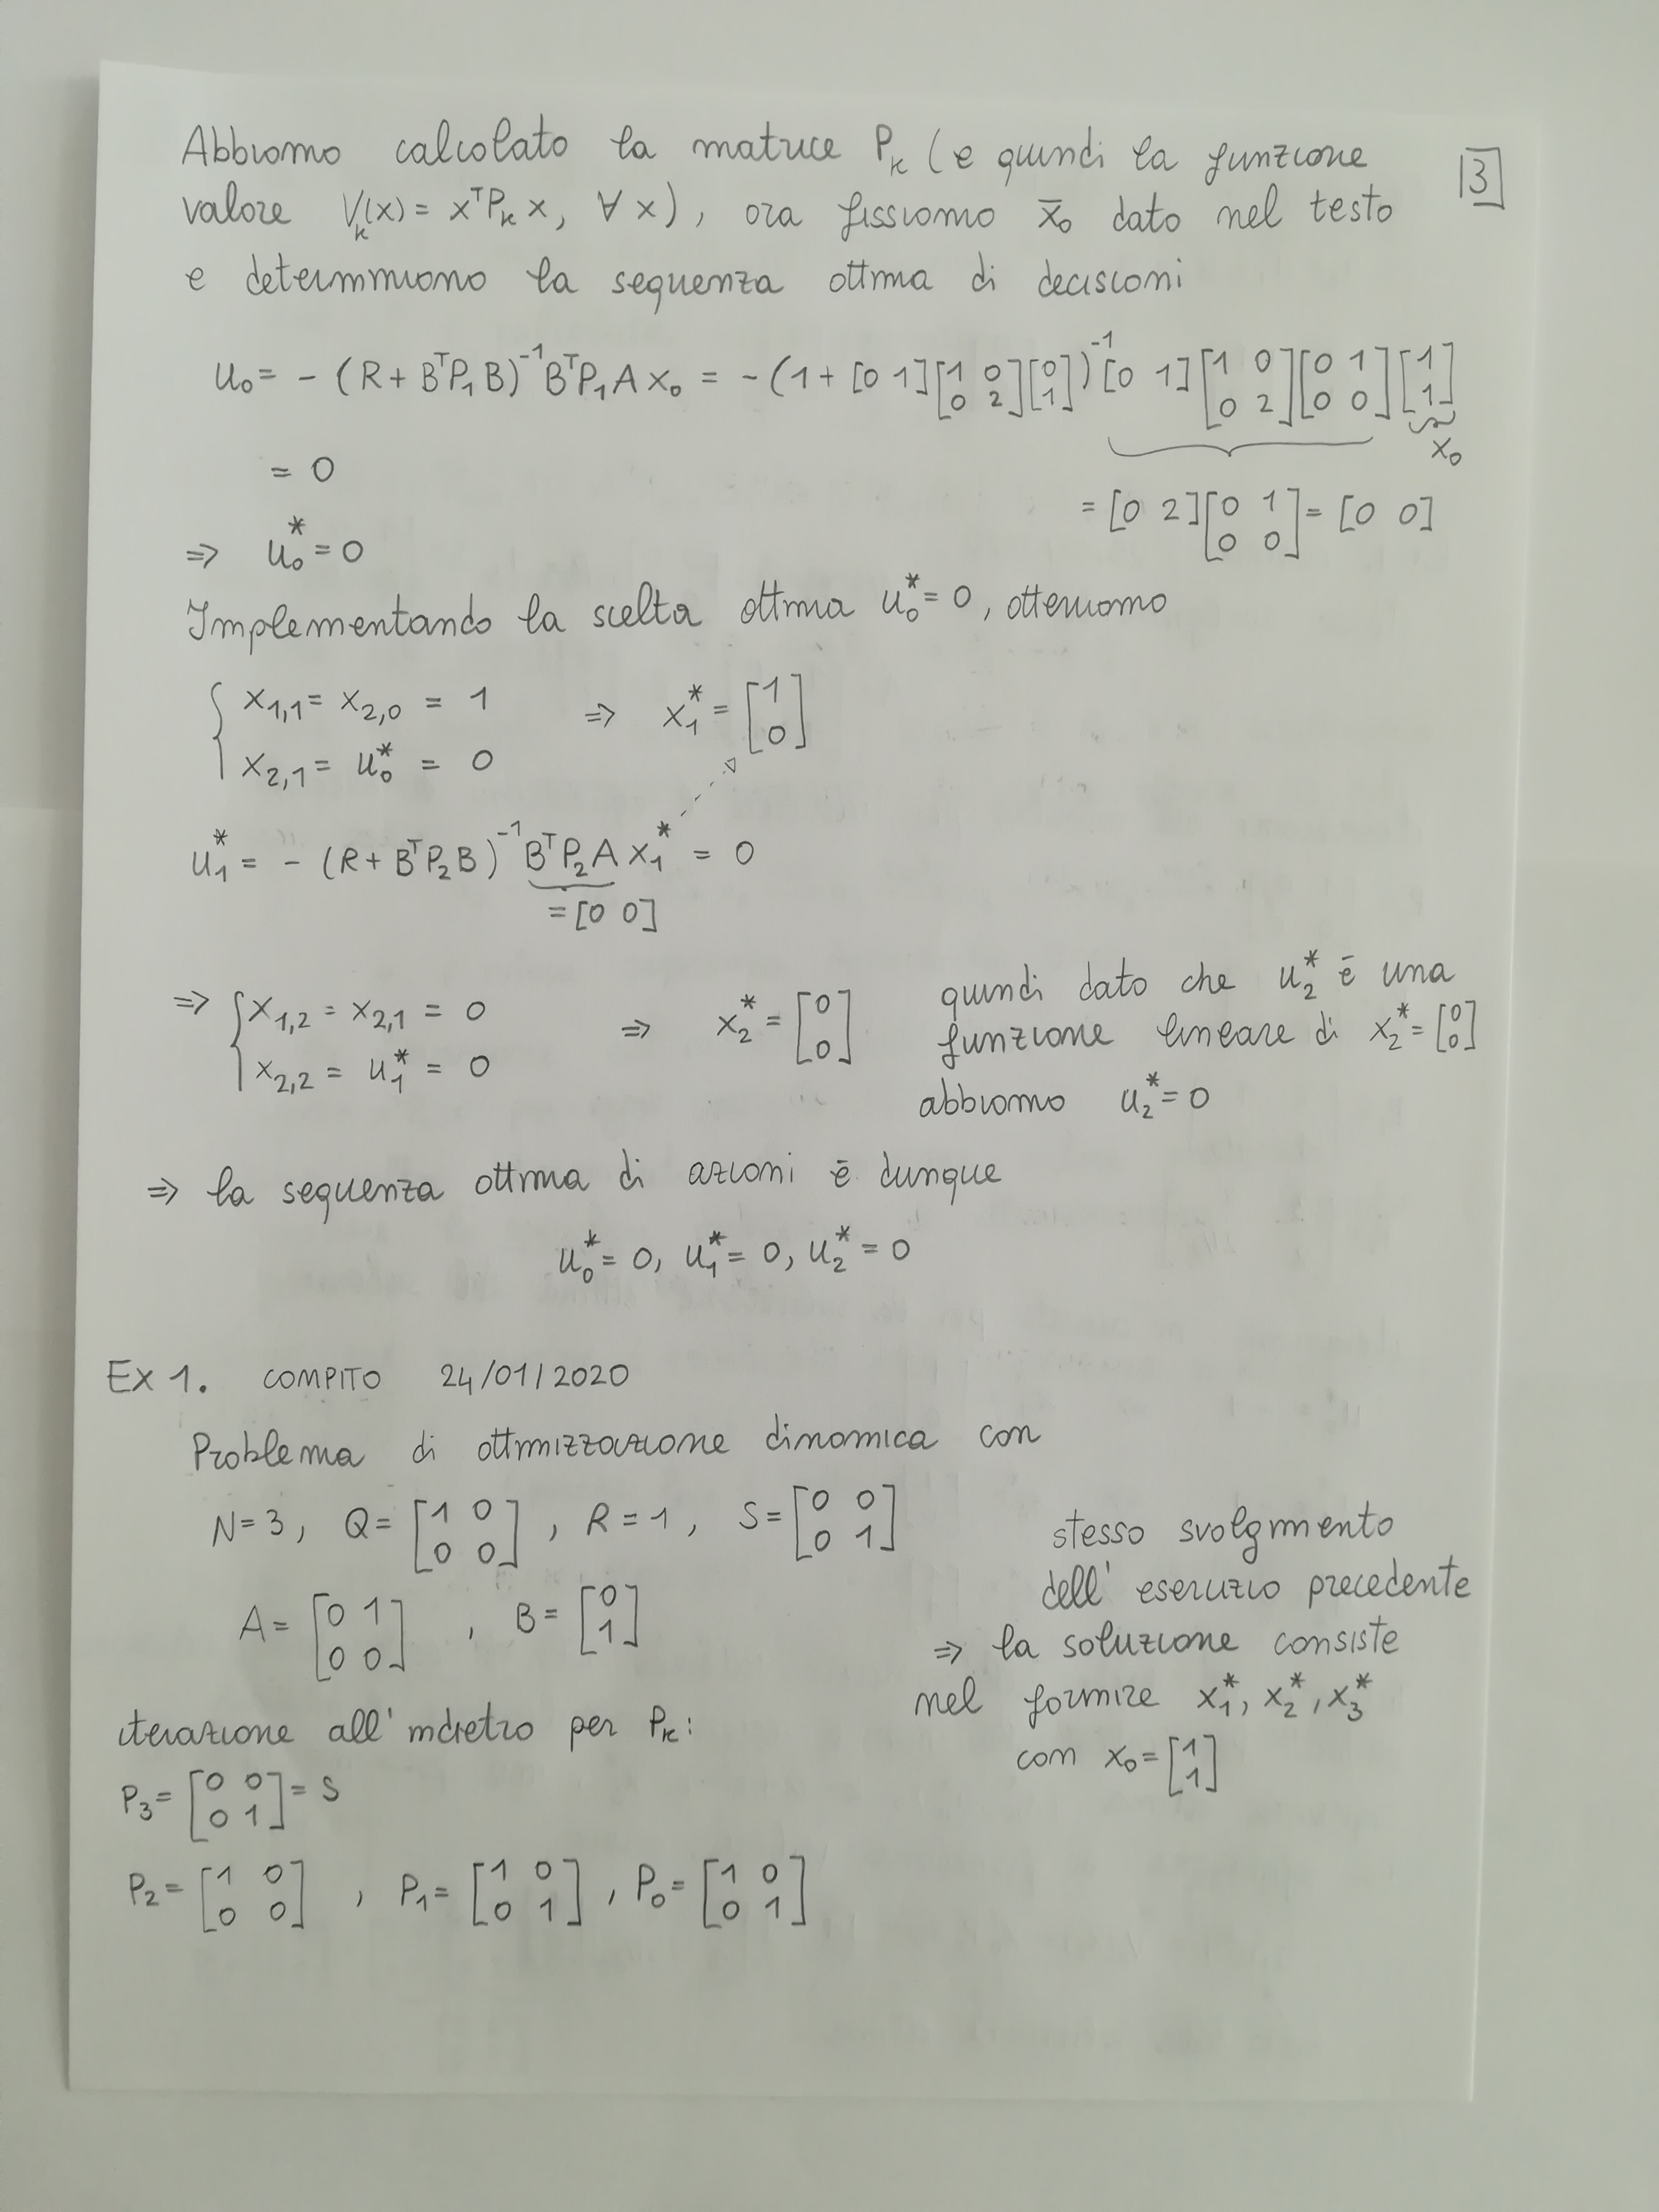 Abbiamo calcolato la matrice P_k (e quindi la funzione
valore V_k(x) = x^T P_k x, ∀ x), ora fissiamo x̄_0 dato nel testo
3
e determiniamo la sequenza ottima di decisioni
u_0 = - (R + B^T P_1 B)^-1 B^T P_1 A x_0 = - (1 + [0 1] [1 0; 0 2] [0; 1])^-1 [0 1] [1 0; 0 2] [0 1; 0 0] [1; 1]
x_0
= 0
= [0 2] [0 1; 0 0] = [0 0]
⇒ u_0^* = 0
Implementando la scelta ottima u_0^* = 0, otteniamo
{ x_1,1 = x_2,0 = 1
x_2,1 = u_0^* = 0
⇒ x_1^* = [1; 0]
u_1^* = - (R + B^T P_2 B)^-1 B^T P_2 A x_1^* = 0
= [0 0]
⇒ { x_1,2 = x_2,1 = 0
x_2,2 = u_1^* = 0
⇒ x_2^* = [0; 0]
quindi dato che u_2^* è una
funzione lineare di x_2^* = [0; 0]
abbiamo u_2^* = 0
⇒ la sequenza ottima di azioni è dunque
u_0^* = 0, u_1^* = 0, u_2^* = 0
Ex 1. COMPITO 24/01/2020
Problema di ottimizzazione dinamica con
N = 3, Q = [1 0; 0 0], R = 1, S = [0 0; 0 1]
A = [0 1; 0 0], B = [0; 1]
stesso svolgimento
dell' esercizio precedente
⇒ la soluzione consiste
nel fornire x_1^*, x_2^*, x_3^*
con x_0 = [1; 1]
iterazione all' indietro per P_k:
P_3 = [0 0; 0 1] = S
P_2 = [1 0; 0 0], P_1 = [1 0; 0 1], P_0 = [1 0; 0 1]